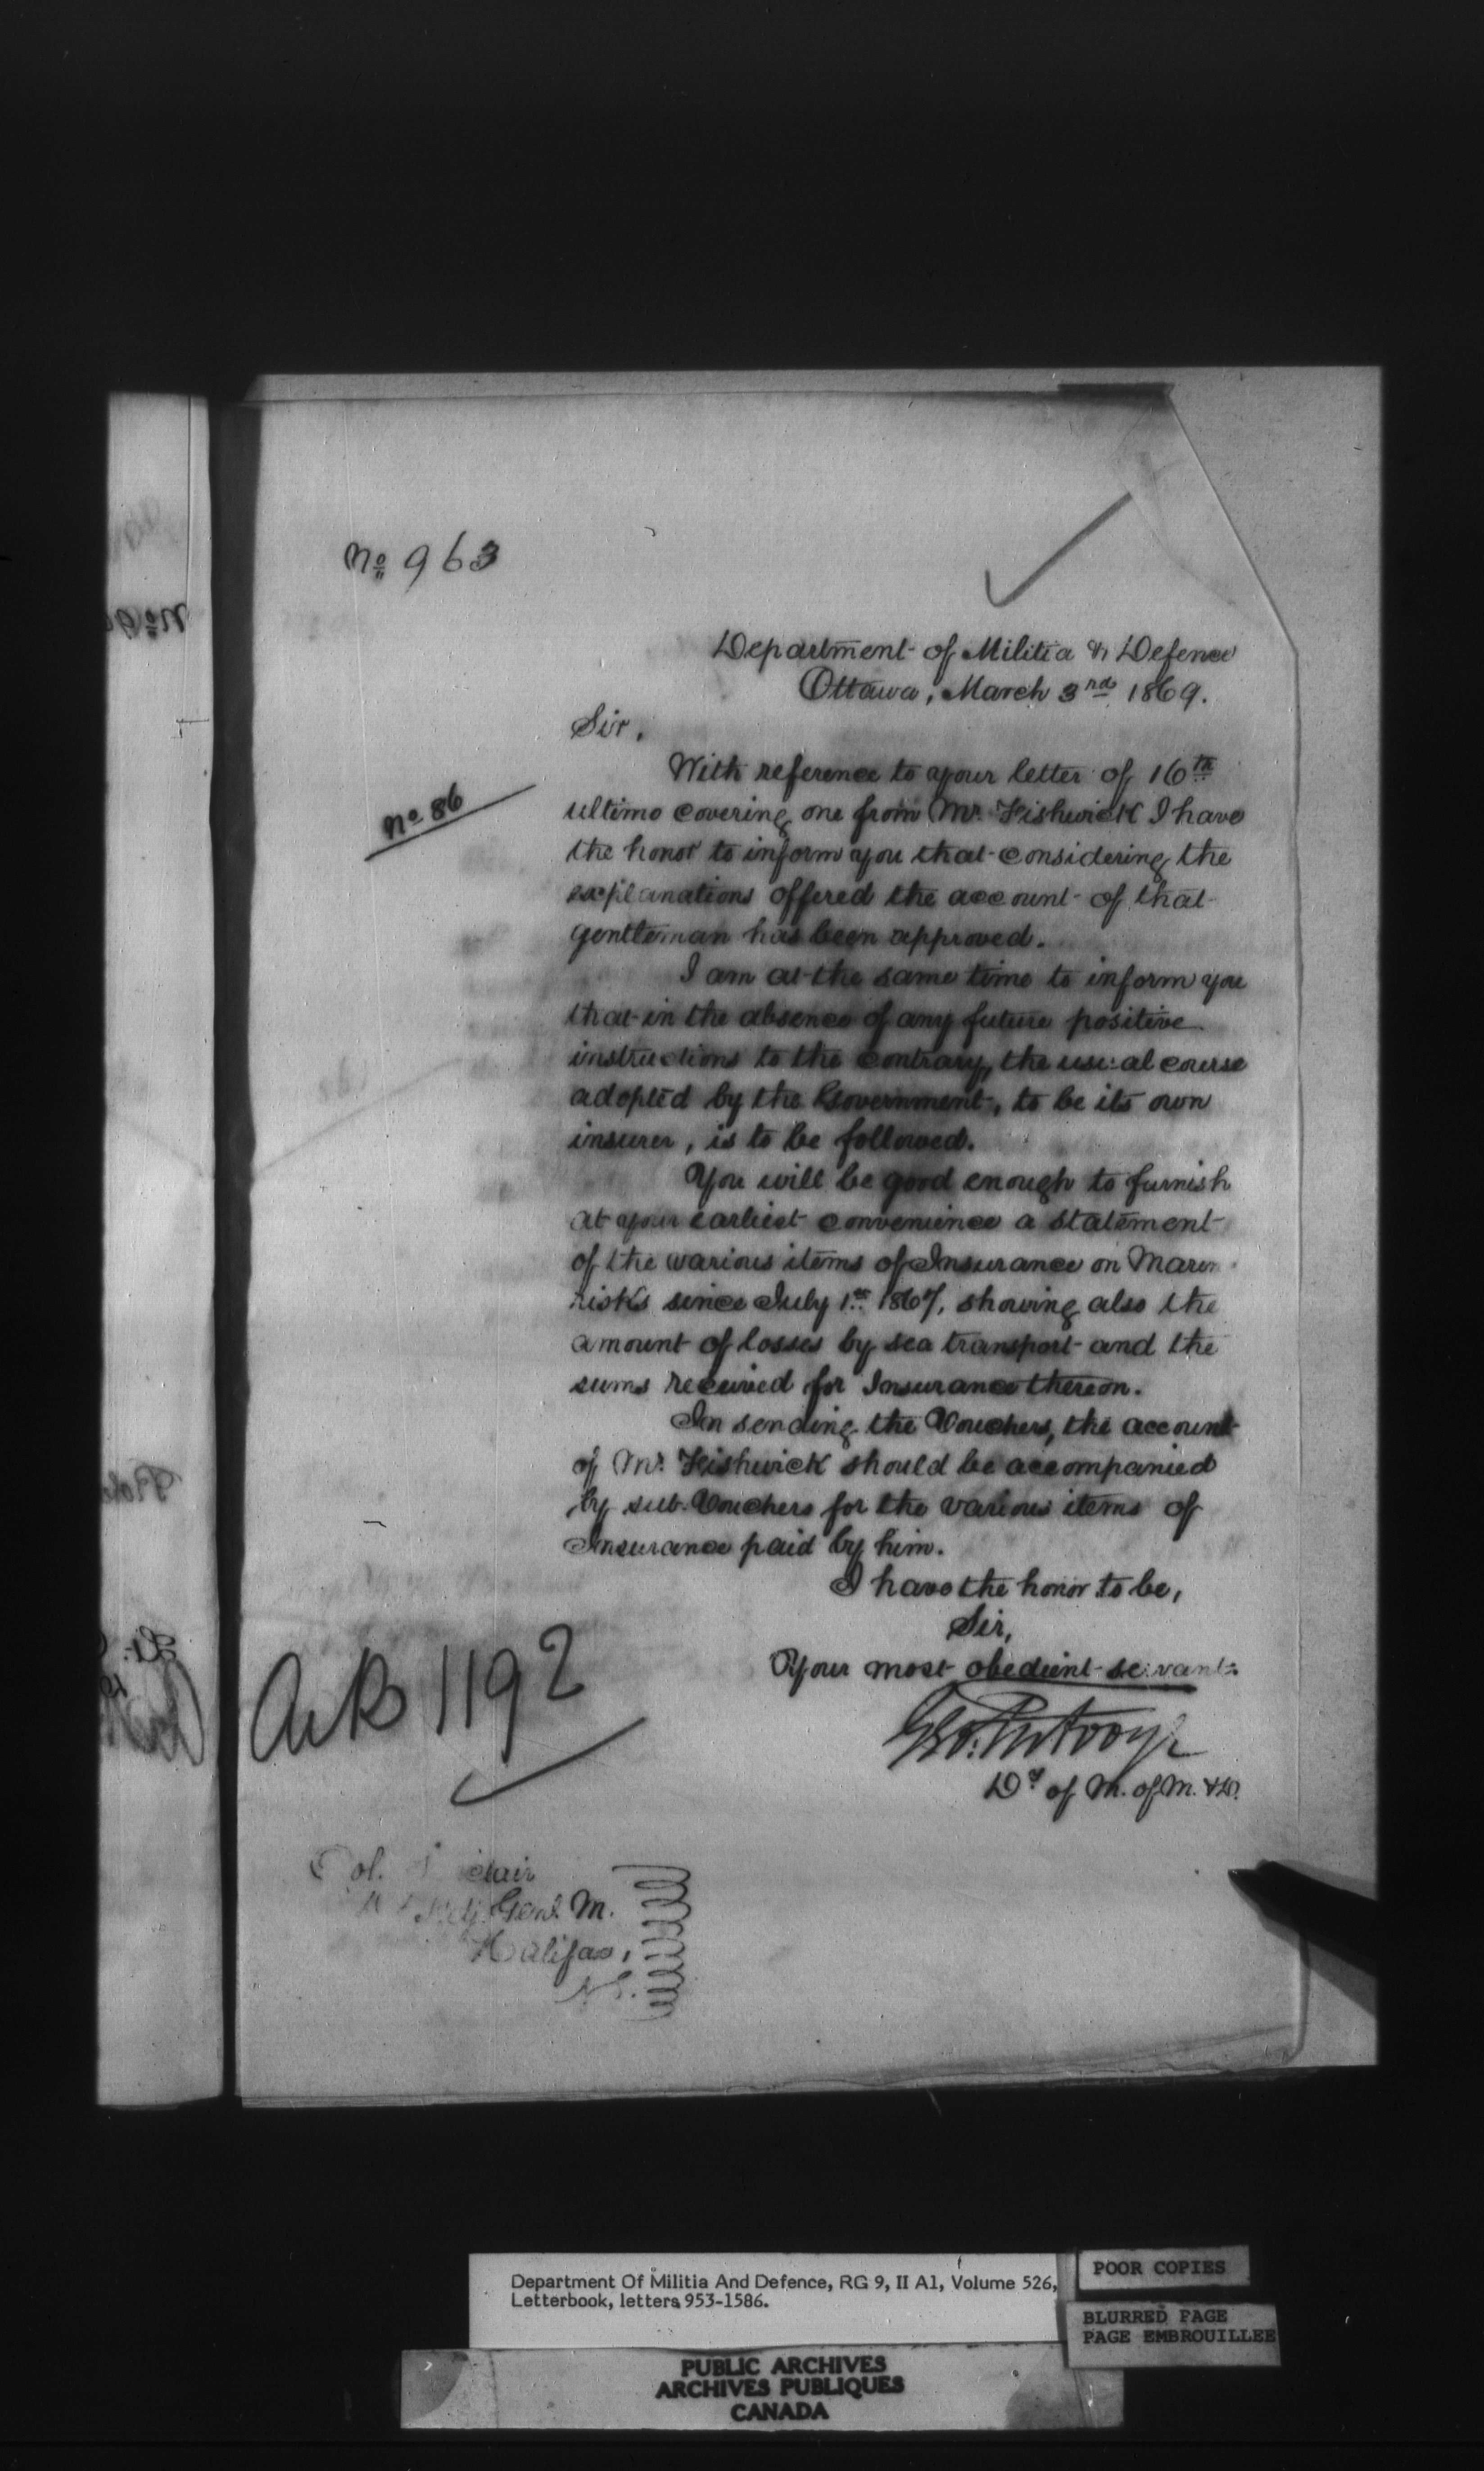 No 963
Department of Militia & Defence
Ottawa, March 3rd 1869.
Sir,
No 86
With reference to your letter of 16th
ultimo covering one from Mr. Fishwick I have
the honor to inform you that considering the
explanations offered the account of that
gentleman has been approved.
I am at the same time to inform you
that in the absence of any future positive
instructions to the contrary, the usual course
adopted by the Government, to be its own
insurer, is to be followed.
You will be good enough to furnish
at your earliest convenience a statement
of the various items of Insurance on Marin
risks since July 1st 1867, showing also the
amount of losses by sea transport and the
sums received for Insurance thereon.
In sending the Vouchers, the account
of Mr. Fishwick should be accompanied
by sub. Vouchers for the various items of
Insurance paid by him.
I have the honor to be,
Sir,
Your most obedient servant
D.y of M. of M. & D.
1192
Col.
Genl M.
Halifax,
N.S.
Department Of Militia And Defence, RG 9, II A1, Volume 526,
Letterbook, letters 953-1586.
POOR COPIES
BLURRED PAGE
PAGE EMBROUILLEE
PUBLIC ARCHIVES
ARCHIVES PUBLIQUES
CANADA